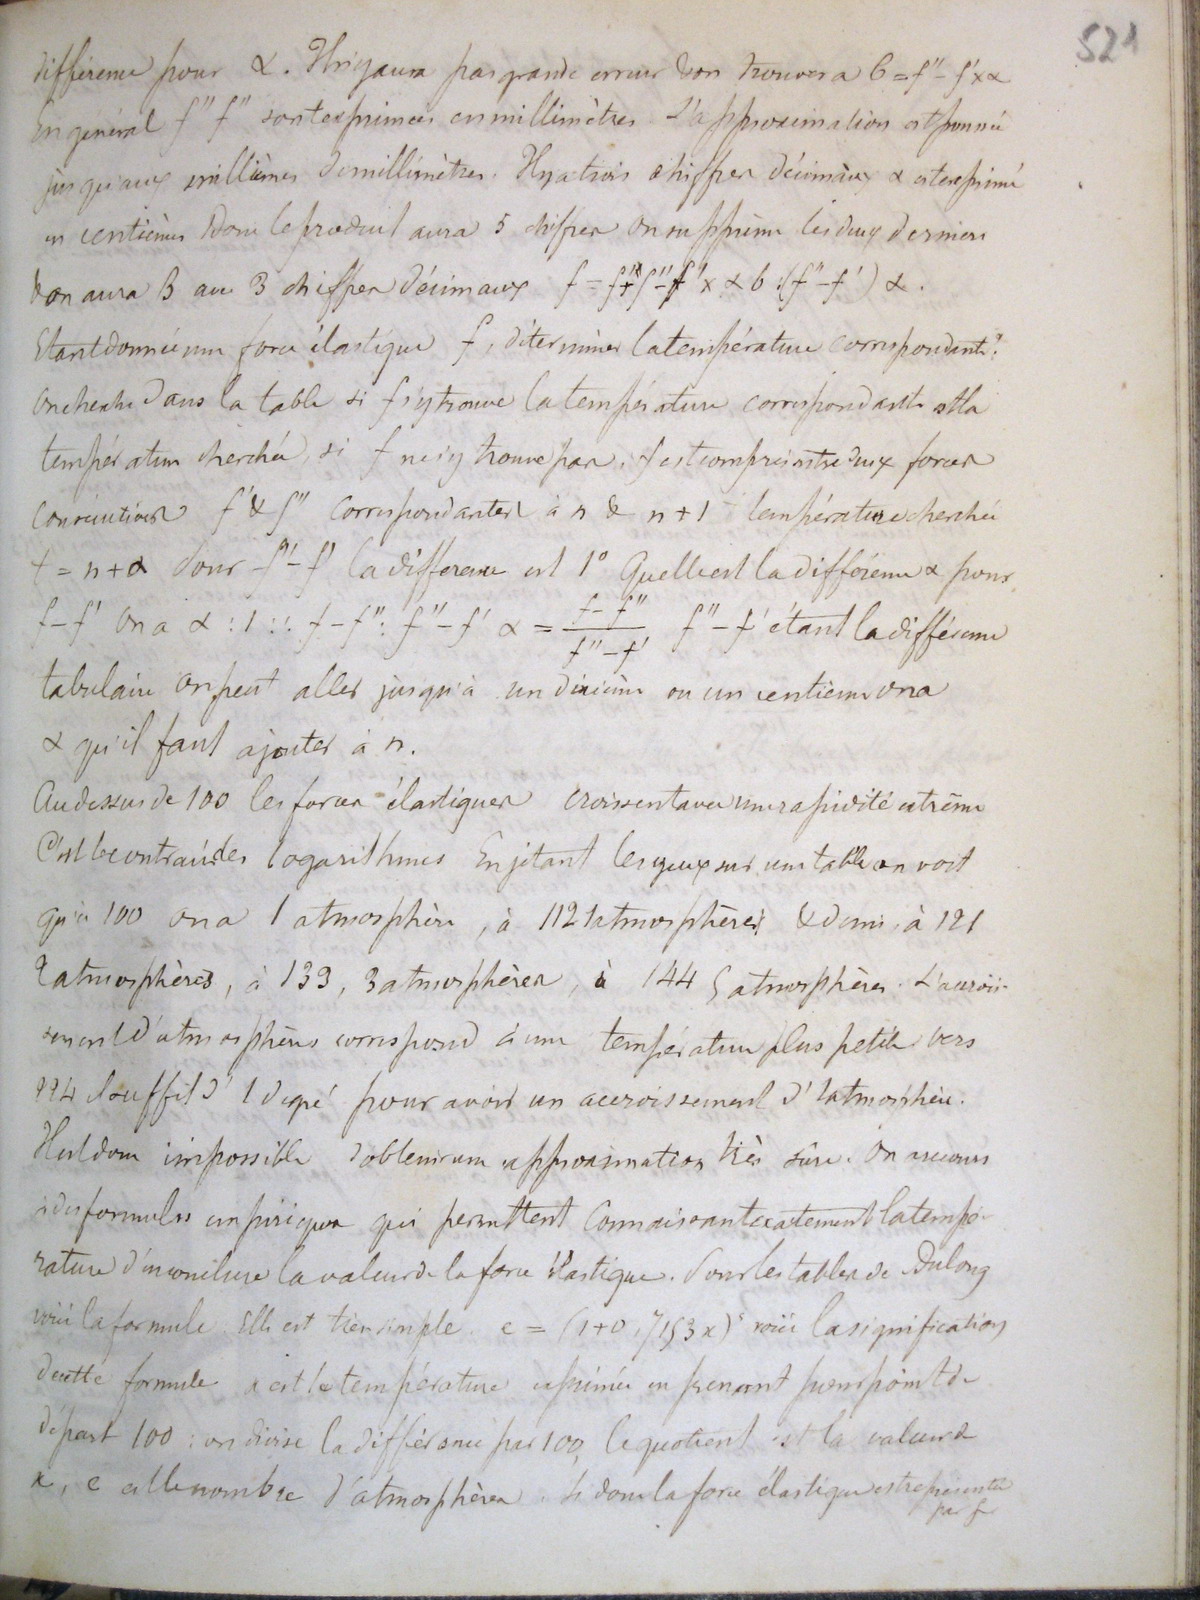 521
différence pour α. Il n'y aura pas grande erreur & on trouvera b = f" - f' x α
En général f" f" sont exprimées en millimètres. L'approximation est poussée
jusqu'aux millièmes de millimètres. Il y a trois chiffres décimaux α est exprimé
en centièmes donc le produit aura 5 chiffres on supprime les deux derniers
& on aura 3 chiffres décimaux f = f' + f" - f' x α b : (f" - f') α.
Etant donnée une force élastique f, déterminer la température correspondante.
On cherche dans la table si f s'y trouve la température correspondante est la
température cherchée, si f ne s'y trouve pas, f est compris entre deux forces
consécutives f' & f" correspondantes à n & n + 1 température cherchée
t = n + α pour f" - f' la différence est 1° Quelle est la différence α pour
f - f' on a α : 1 :: f - f" : f" - f' α = f - f" / f" - f' f" - f' étant la différence
tabulaire on peut aller jusqu'à un dixième ou un centième on a
α qu'il faut ajouter à n.
Au dessus de 100 les forces élastiques croissent avec une rapidité extrême
C'est le contraire des logarithmes En jetant les yeux sur une table on voit
qu'à 100 on a 1 atmosphère, à 112 1 atmosphères & demi, à 121
2 atmosphères, à 133, 3 atmosphères, à 144 5 atmosphères. L'accrois-
sement d'atmosphères correspond à une température plus petite vers
224 il suffit d'1 degré pour avoir un accroissement d'1 atmosphère.
Il est donc impossible d'obtenir une approximation très sûre. On a recours
à des formules empiriques qui permettent connaissant exactement la tempé-
rature d'en conclure la valeur de la force élastique. Pour les tables de Dulong
voici la formule. Elle est très simple. e = (1+0,7153x)⁵ voici la signification
de cette formule x est la température exprimée en prenant pour point de
départ 100 : on divise la différence par 100, le quotient est la valeur de
x, e est le nombre d'atmosphères. Si donc la force élastique est représentée
par f